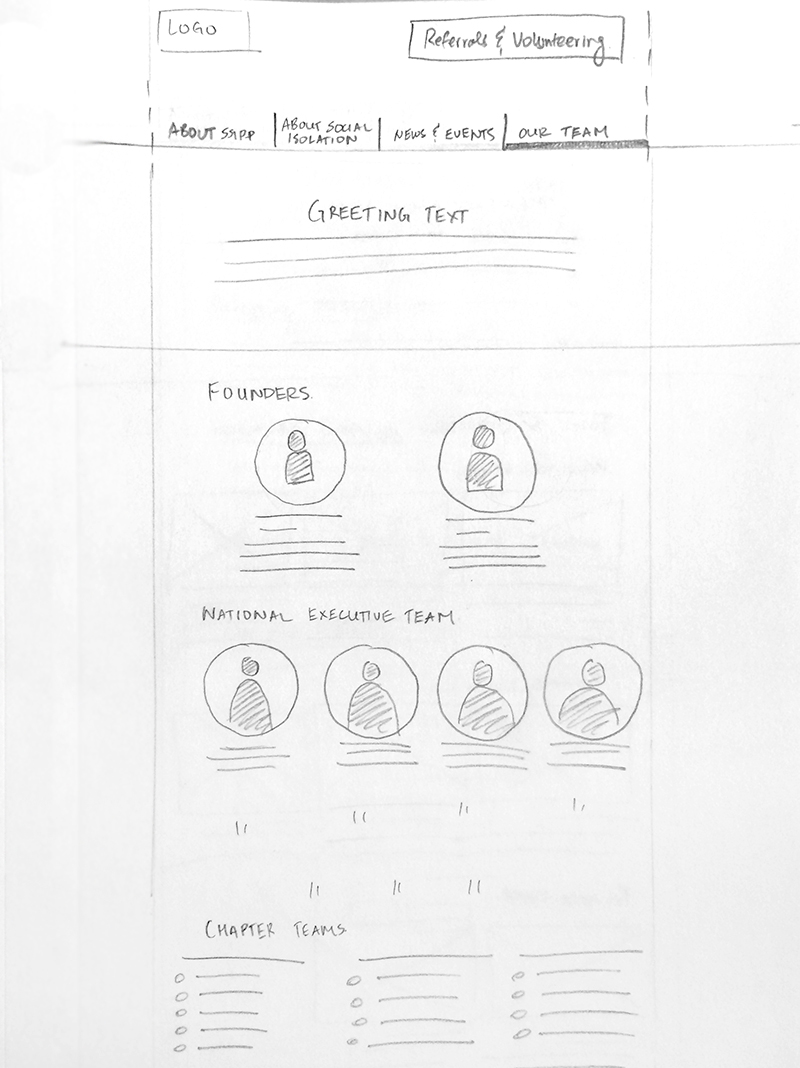 LOGO
Referrals & Volunteering
ABOUT SSIPP
ABOUT SOCIAL
ISOLATION
NEWS & EVENTS
OUR TEAM
GREETING TEXT
FOUNDERS.
NATIONAL EXECUTIVE TEAM
CHAPTER TEAMS